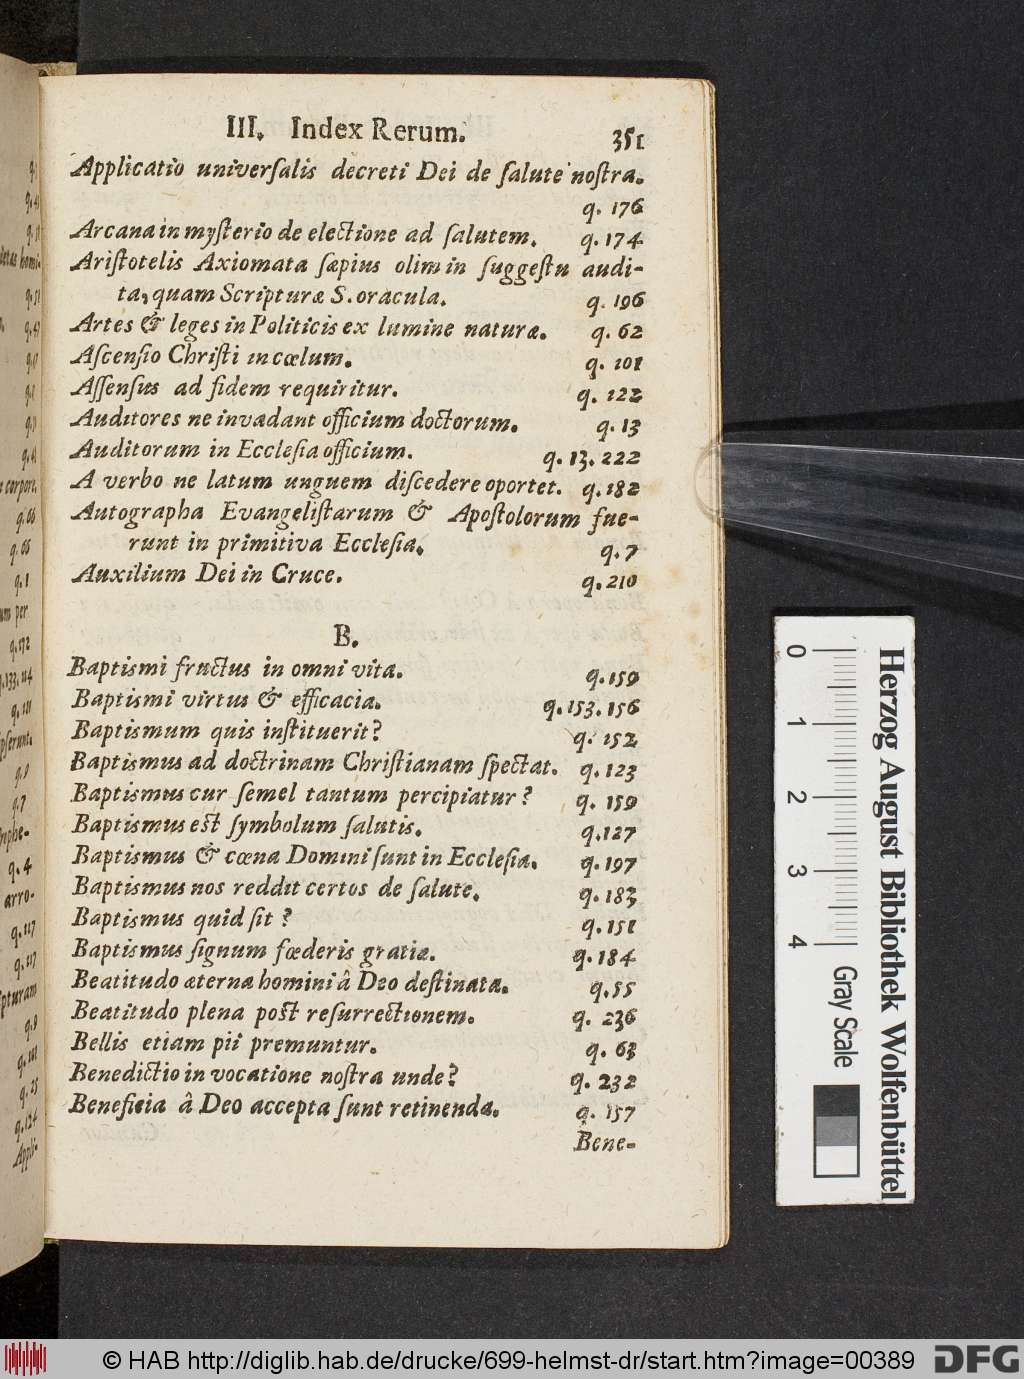 III. Index Rerum. 351
Applicatio universalis decreti Dei de salute nostra.
q. 176
Arcana in mysterio de electione ad salutem. q. 174
Aristotelis Axiomata sæpius olim in suggestu audi-
ta, quam Scripturæ S. oracula. q. 196
Artes & leges in Politicis ex lumine naturæ. q. 62
Ascensio Christi in cœlum. q. 101
Assensus ad fidem requiritur. q. 122
Auditores ne invadant officium doctorum. q. 13
Auditorum in Ecclesia officium. q. 13. 222
A verbo ne latum unguem discedere oportet. q. 182
Autographa Evangelistarum & Apostolorum fue-
runt in primitiva Ecclesia. q. 7
Auxilium Dei in Cruce. q. 210
B.
Baptismi fructus in omni vita. q. 159
Baptismi virtus & efficacia. q. 153. 156
Baptismum quis instituerit? q. 152
Baptismus ad doctrinam Christianam spectat. q. 123
Baptismus cur semel tantum percipiatur? q. 159
Baptismus est symbolum salutis. q. 127
Baptismus & cœna Domini sunt in Ecclesia. q. 197
Baptismus nos reddit certos de salute. q. 183
Baptismus quid sit? q. 151
Baptismus signum fœderis gratiæ. q. 184
Beatitudo æterna homini â Deo destinata. q. 55
Beatitudo plena post resurrectionem. q. 236
Bellis etiam pii premuntur. q. 63
Benedictio in vocatione nostra unde? q. 232
Beneficia â Deo accepta sunt retinenda. q. 157
Bene-
0 1 2 3 4 Gray Scale
Herzog August Bibliothek Wolfenbüttel
© HAB http://diglib.hab.de/drucke/699-helmst-dr/start.htm?image=00389 DFG